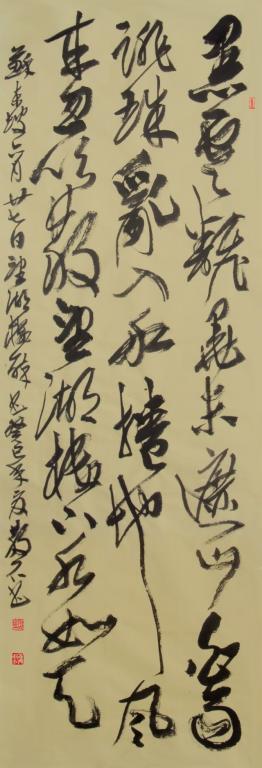 黑雲翻墨未遮山白雨
跳珠亂入船捲地風
來忽吹散望湖樓下水如天
蘇東坡六月廿七日望湖樓醉書癸巳年夏